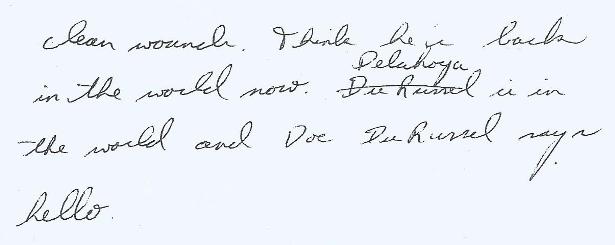 clean wounds. Think he is back
Delahoya
in the world now. DuRussel is in
the world and Doc DuRussel says
hello.